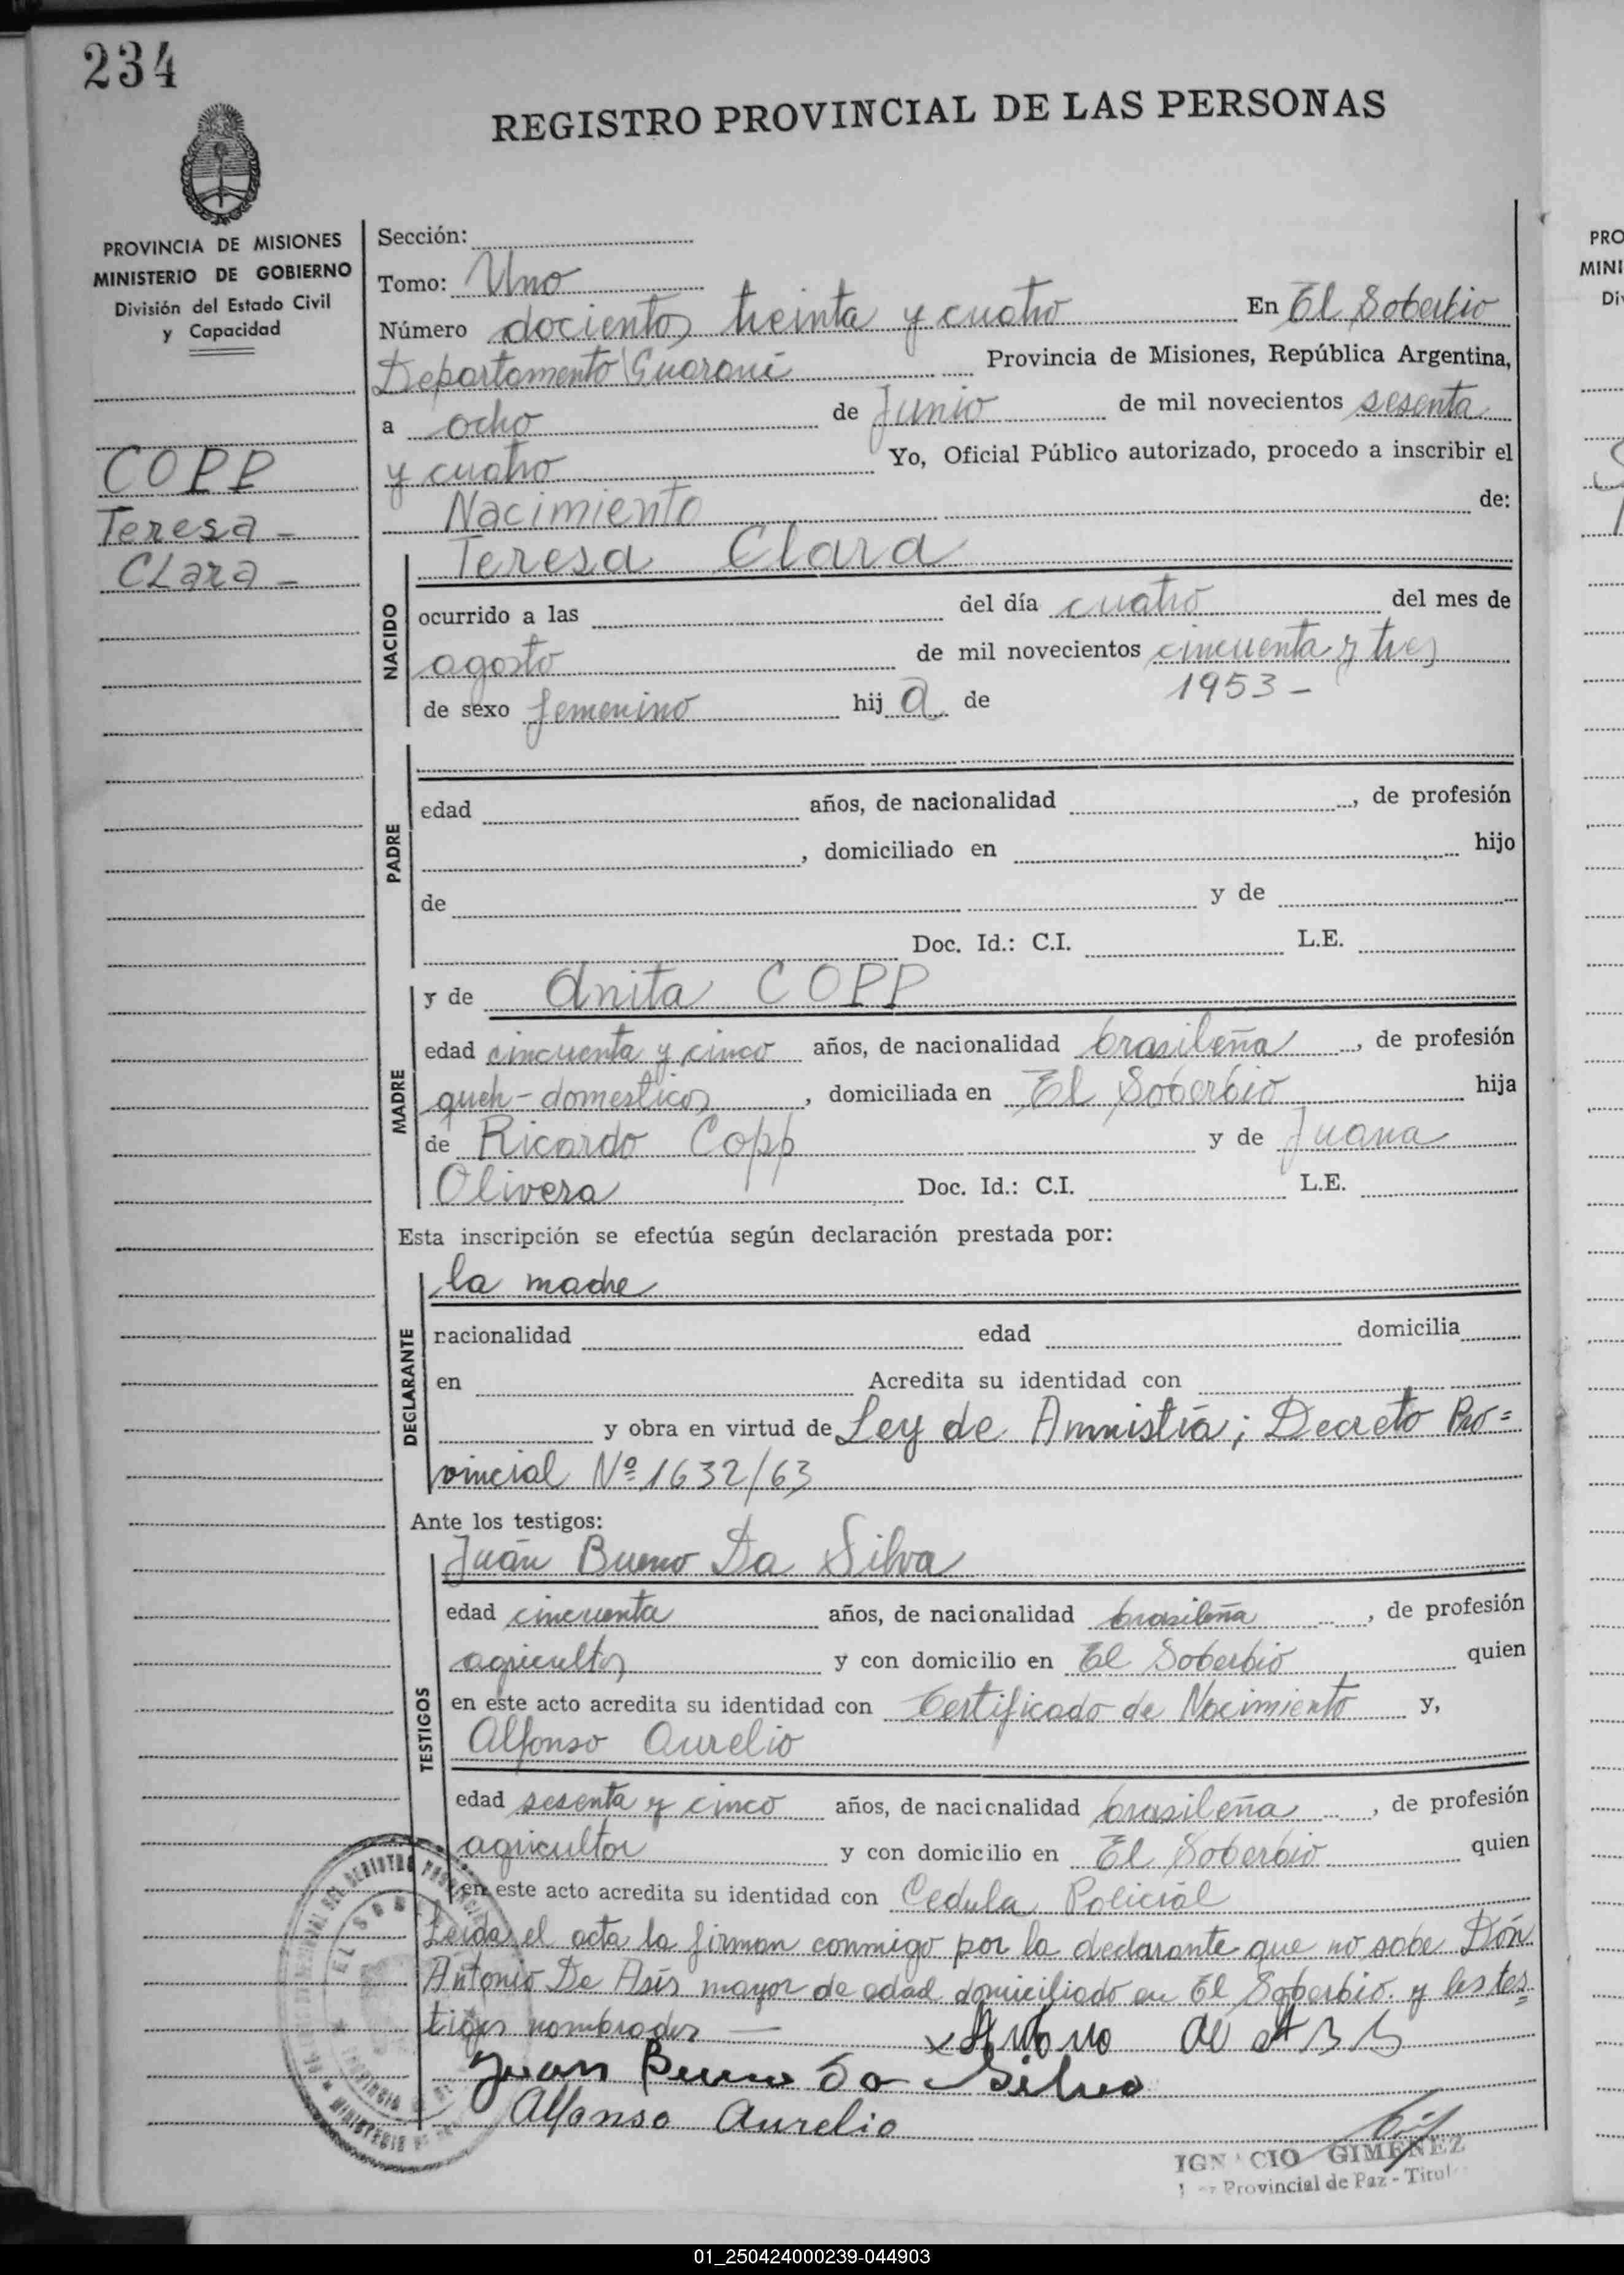 234
REGISTRO PROVINCIAL DE LAS PERSONAS
PROVINCIA DE MISIONES
MINISTERIO DE GOBIERNO
División del Estado Civil
y Capacidad
COPP
Teresa -
CLara -
Sección:
Tomo: Uno
Número docientos treinta y cuatro En El Soberbio
Departamento Guaraní Provincia de Misiones, República Argentina,
a ocho de Junio de mil novecientos sesenta
y cuatro Yo, Oficial Público autorizado, procedo a inscribir el
Nacimiento de:
NACIDO
Teresa Clara
ocurrido a las del día cuatro del mes de
agosto de mil novecientos cincuenta y tres
1953 -
de sexo femenino hij a de
PADRE
edad años, de nacionalidad , de profesión
, domiciliado en hijo
de y de
Doc. Id.: C.I. L.E.
MADRE
y de Anita COPP
edad cincuenta y cinco años, de nacionalidad brasileña , de profesión
queh-domesticos , domiciliada en El Soberbio hija
de Ricardo Copp y de Juana
Olivera Doc. Id.: C.I. L.E.
Esta inscripción se efectúa según declaración prestada por:
DECLARANTE
la madre
nacionalidad edad domicilia
en Acredita su identidad con
y obra en virtud de Ley de Amnistía; Decreto Pro=
vincial Nº 1632/63
Ante los testigos:
TESTIGOS
Juán Bueno Da Silva
edad cincuenta años, de nacionalidad brasileña , de profesión
agricultor y con domicilio en El Soberbio quien
en este acto acredita su identidad con Certificado de Nacimiento y,
Alfonso Aurelio
edad sesenta y cinco años, de nacionalidad brasileña , de profesión
agricultor y con domicilio en El Soberbio quien
en este acto acredita su identidad con Cedula Policial
Leida el acta la firman conmigo por la declarante que no sabe Dón
Antonio De Asís mayor de edad domiciliado en El Soberbio y los tes=
tigos nombrados —
Juan Bueno da Silva
Alfonso Aurelio
EL SOB
IGNACIO GIMENEZ
Provincial de Paz - Titul
PRO
MINI
Di
01_250424000239-044903